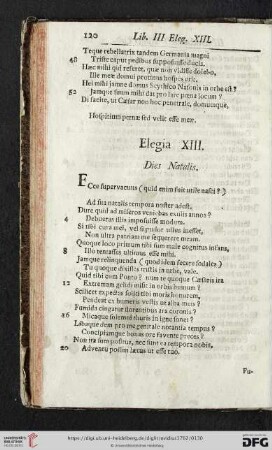 120 Lib. III Eleg. XIII.
Teque rebellatrix tandem Germania magni
48 Triste caput pedibus supposuisse ducis.
Hæc mihi qui referet, quæ non vidisse dolebo,
Ille meæ domui protinus hospes erit.
Hei mihi jamne domus Scythico Nasonis in orbe est?
52 Jamque suum mihi dat pro lare pœna locum?
Di facite, ut Cæsar non hoc penetrale, domumque,
Hospitium pœnæ sed velit esse meæ.
Elegia XIII.
Dies Natalis.
Ecce supervacuus (quid enim fuit utile nasci?)
Ad sua natalis tempora noster adest.
Dure quid ad miseros veniebas exulis annos?
4 Debueras illis imposuisse modum.
Si tibi cura mei, vel si pudor ullus inesset,
Non ultra patriam me sequerere meam.
Quoque loco primum tibi sum male cognitus infans,
8 Illo tentasses ultimus esse mihi.
Jamque relinquenda (quod idem fecere sodales)
Tu quoque dixisses tristis in urbe, vale.
Quid tibi cum Ponto? num te quoque Cæsaris ira
12 Extremam gelidi misit in orbis humum?
Scilicet expectes soliti tibi moris honorem,
Pendeat ex humeris vestis ut alba meis?
Fumida cingatur florentibus ara coronis?
16 Micaque solemni thuris in igne sonet?
Libaque dem pro me genitale notantia tempus?
Concipiamque bonas ore favente preces?
Non ita sum positus, nec sunt ea tempora nobis,
20 Adventu possim lætus ut esse tuo.
Fu-
https://digi.ub.uni-heidelberg.de/diglit/ovidius1702/0130
UNIVERSITÄTS-
BIBLIOTHEK
HEIDELBERG
© Universitätsbibliothek Heidelberg
gefördert durch die
DFG